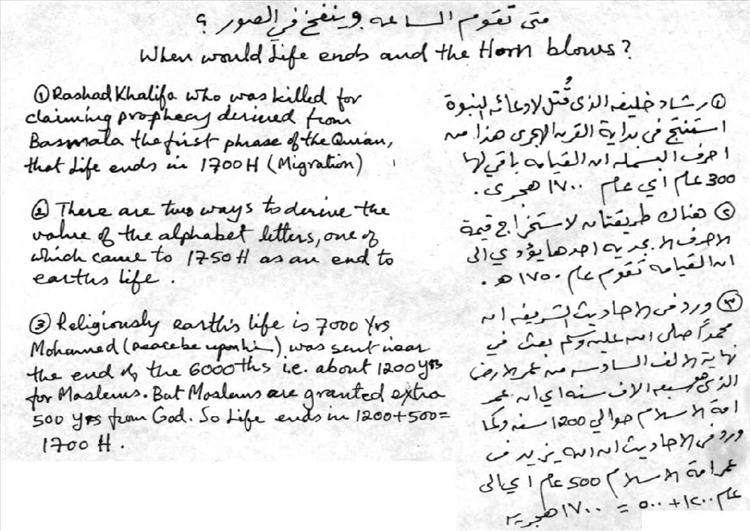 متى تقوم الساعه وينفخ في الصور ؟
When would Life ends and the Horn blows?
① Rashad Khalifa who was killed for
claiming prophecy derived from
Basmala the first phrase of the Quran,
that Life ends in 1700H (Migration)
② There are two ways to derive the
value of the alphabet letters, one of
which came to 1750H as an end to
earths life.
③ Religiously earth's life is 7000 yrs
Mohamed (peace be upon hi) was sent near
the end of the 6000ths i.e. about 1200 yrs
for Moslems. But Moslems are granted extra
500 yrs from God. So Life ends in 1200+500=
1700 H.
① رشاد خليفه الذى قُتل لادعائه النبوة
استنتج فى بداية القرن الهجرى هذا من
احرف البسمله ان القيامه باقي لها
300 عام اي عام ١٧٠٠ هجرى.
② هناك طريقتان لاستخراج قيمة
الاحرف الابجديه احدها يؤدي الى
ان القيامه تقوم عام ١٧٥٠ ه.
③ ورد فى الاحاديث الشريفه ان
محمداً صلى الله عليه وسلم بعث في
نهاية الالف السادسه من عمر الارض
الذى هو سبعه الاف سنه اي ان عمر
امة الاسلام حوالي 1200 سنه وكما
ورد فى الاحاديث ان الله يزيد فى
عمر امة الاسلام 500 عام اي الى
عام ١٢٠٠ + ٥٠٠ = ١٧٠٠ هجريه